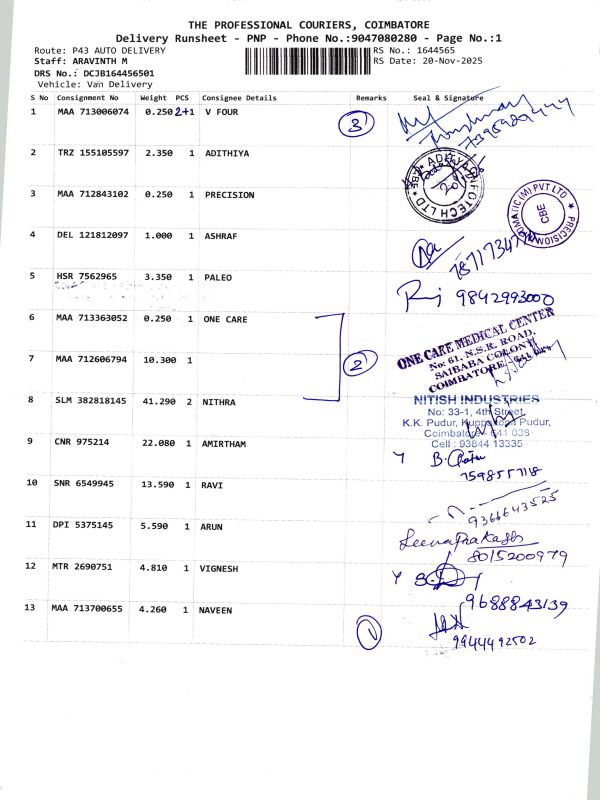 THE PROFESSIONAL COURIERS, COIMBATORE
Delivery Runsheet - PNP - Phone No.:9047080280 - Page No.:1
Route: P43 AUTO DELIVERY RS No.: 1644565
Staff: ARAVINTH M RS Date: 20-Nov-2025
DRS No.: DCJB164456501
Vehicle: Van Delivery
S No Consignment No Weight PCS Consignee Details Remarks Seal & Signature
1 MAA 713006074 0.250 2+1 V FOUR 3
2 TRZ 155105597 2.350 1 ADITHIYA
ADITYA INFOTECH LTD
3 MAA 712843102 0.250 1 PRECISION
PRECISION INFOMATIC (M) PVT LTD CBE
4 DEL 121812097 1.000 1 ASHRAF
5 HSR 7562965 3.350 1 PALEO
9842993000
6 MAA 713363052 0.250 1 ONE CARE
ONE CARE MEDICAL CENTER
No: 61, N.S.R. ROAD,
SAIBABA COLONY
COIMBATORE
7 MAA 712606794 10.300 1 2
8 SLM 382818145 41.290 2 NITHRA
NITISH INDUSTRIES
No: 33-1, 4th Street,
K.K. Pudur, Kuppakonam Pudur,
Coimbatore - 641 038
Cell : 93844 13335
9 CNR 975214 22.080 1 AMIRTHAM
7598557118
10 SNR 6549945 13.590 1 RAVI
9366643525
11 DPI 5375145 5.590 1 ARUN
Leena Prakash
8015200979
12 MTR 2690751 4.810 1 VIGNESH
9688843139
13 MAA 713700655 4.260 1 NAVEEN 1
9944492502